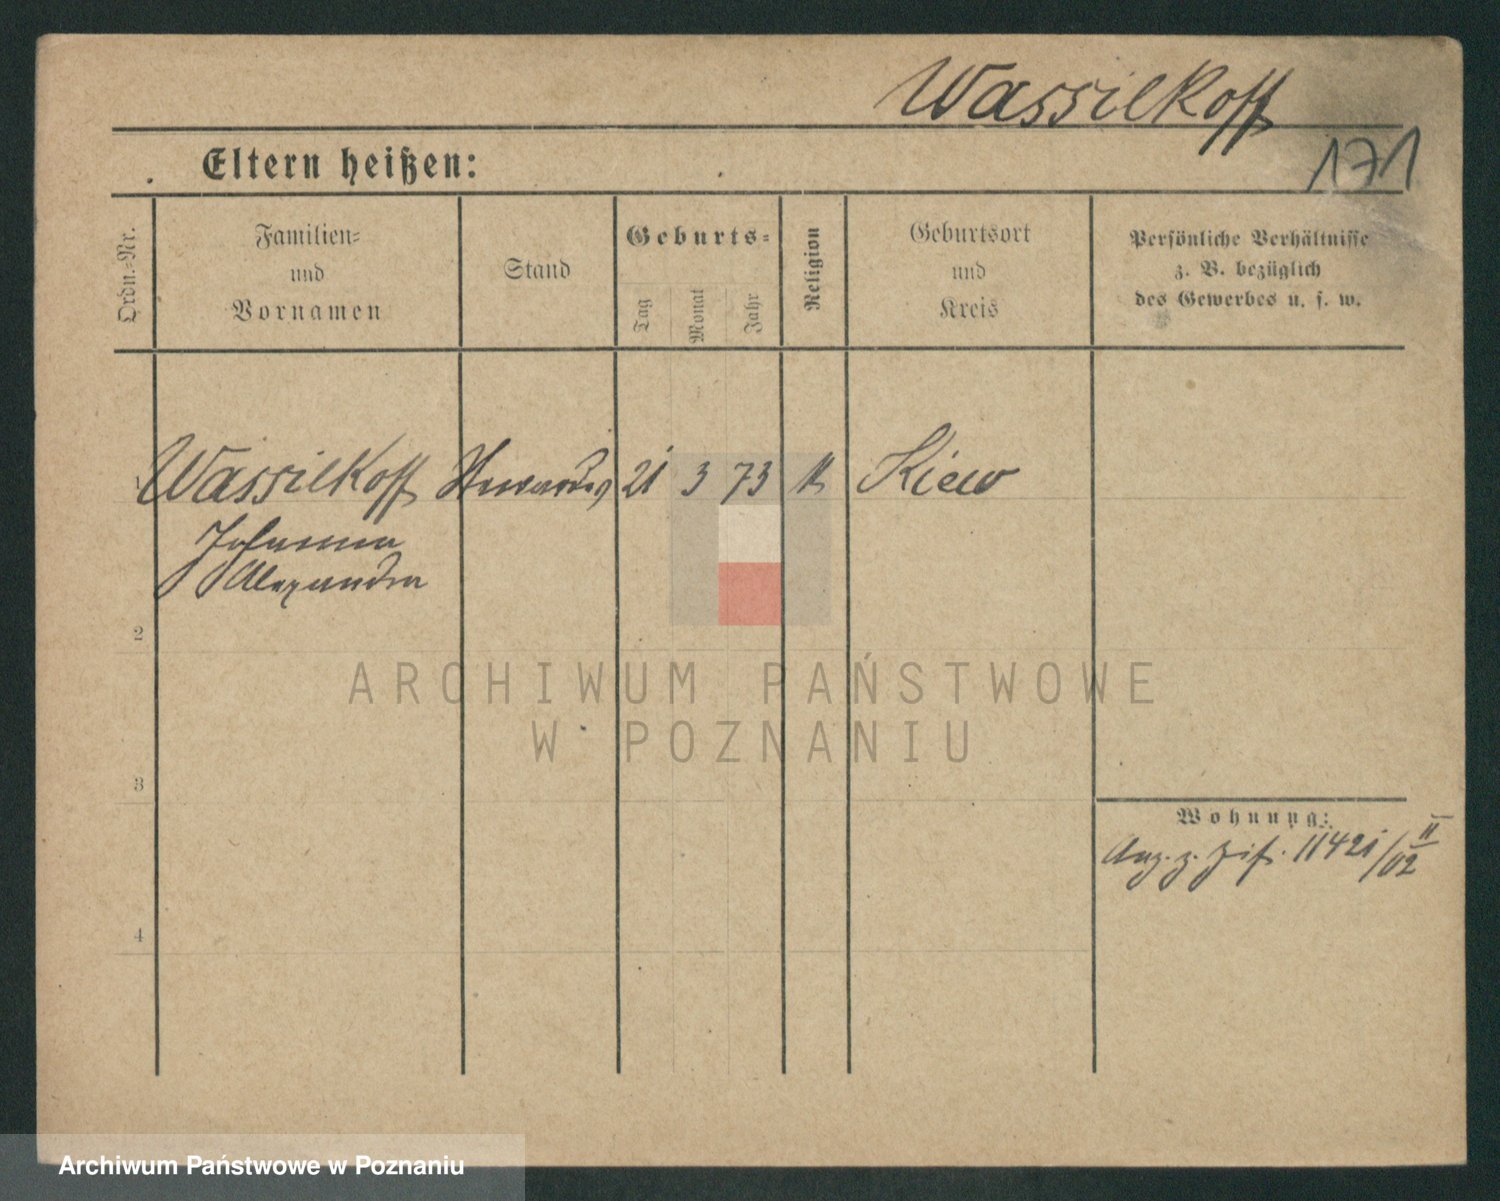 Wassilkoff
171
Eltern heißen:
Ordn.-Nr.
Familien-
und
Vornamen
Stand
Geburts-
Tag
Monat
Jahr
Religion
Geburtsort
und
Kreis
Persönliche Verhältnisse
z. B. bezüglich
des Gewerbes u. s. w.
1 Wassilkoff 21 3 73 k Kiew
Johanna
Alexandra
2
3
4
Wohnung:
11421/02 II
ARCHIWUM PAŃSTWOWE
W POZNANIU
Archiwum Państwowe w Poznaniu